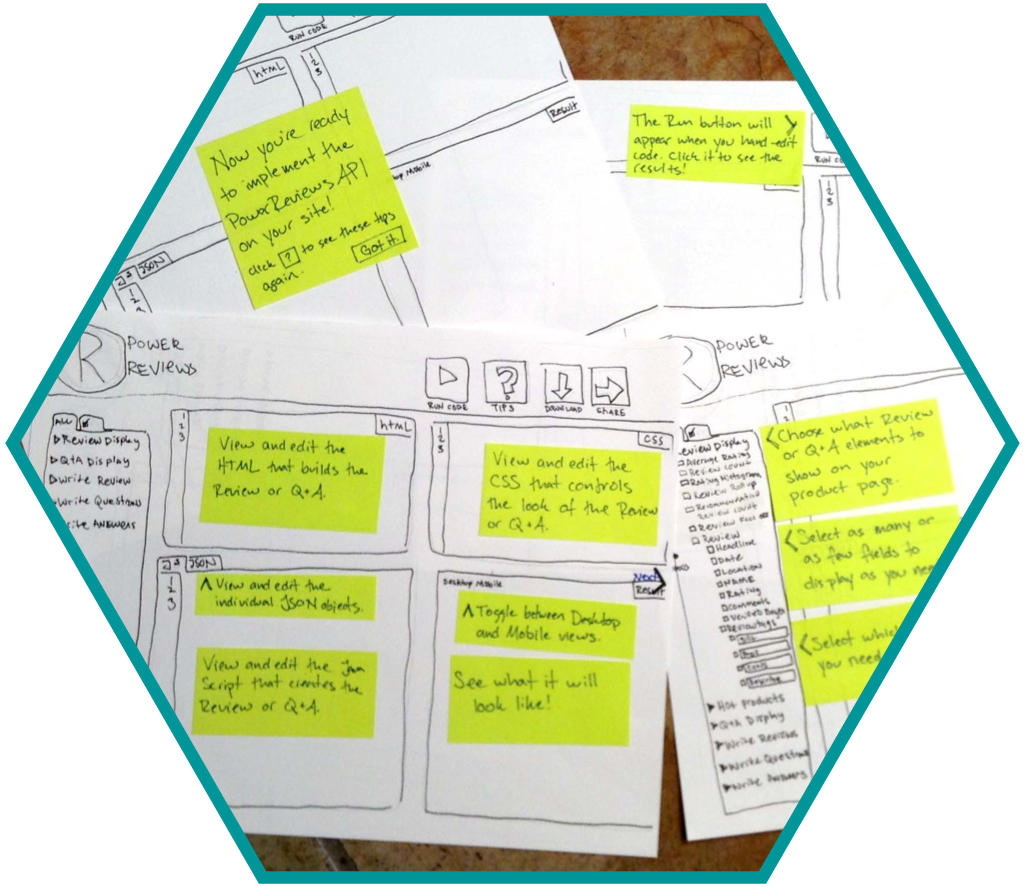 RUN CODE
html
1
2
3
Result
Now you're ready
to implement the
PowerReviews API
on your site!
click ? to see these tips
again.
Got it
Mobile
JS JSON
1
2
3
The Run button will
appear when you hand-edit
code. Click it to see the
results!
RUN CO
1
2
3
R POWER
REVIEWS
RUN CODE
TIPS
DOWNLOAD
SHARE
ALL
Review Display
Q+A Display
Write Review
Write Questions
Write Answers
1
2
3
html
View and edit the
HTML that builds the
Review or Q+A.
1
2
3
CSS
View and edit the
CSS that controls
the look of the Review
or Q+A.
JS JSON
1
2
3
^ View and edit the
individual JSON objects.
View and edit the Java
Script that creates the
Review or Q+A.
Desktop Mobile
Next
Result
^ Toggle between Desktop
and Mobile views.
See what it will
look like!
POWER
REVIEWS
1
2
eview Display
Average Rating
Review Count
Rating Histogram
Review Rollup
Review Count
Review
Headline
Date
Location
Name
Rating
Comments
Review Tags
Hot products
Q+A Display
Write Reviews
Write Questions
Write Answers
< Choose what Review
or Q+A elements to
show on your
product page.
< Select as many or
as few fields to
display as you need
< Select which
you need